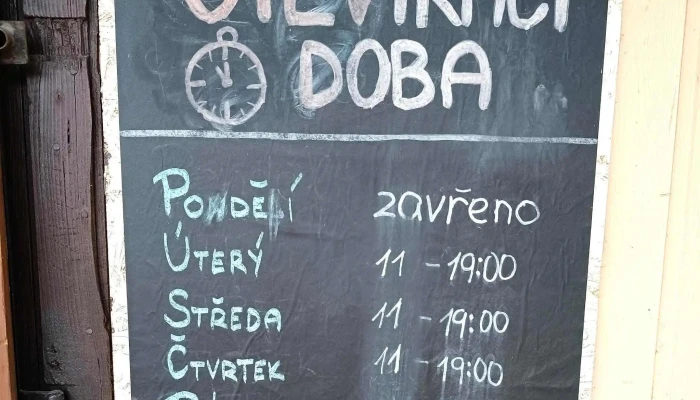 OTEVÍRACÍ
DOBA
PONDĚLÍ zavřeno
ÚTERÝ 11 - 19:00
STŘEDA 11 - 19:00
ČTVRTEK 11 - 19:00